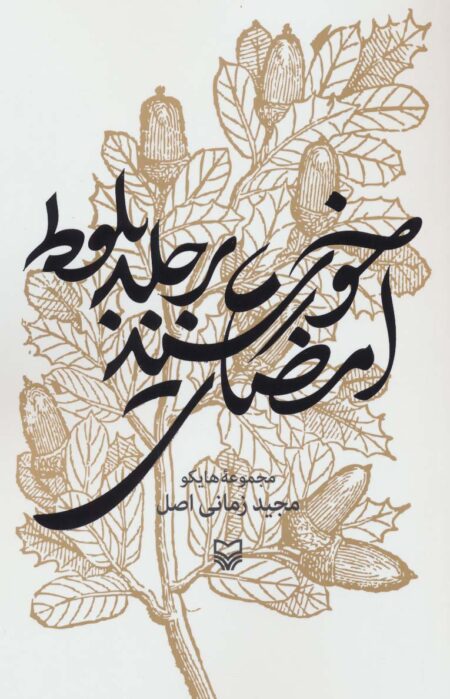 امضای خورشید
بر جلد بلوط
مجموعهٔ هایکو
مجید زمانی اصل